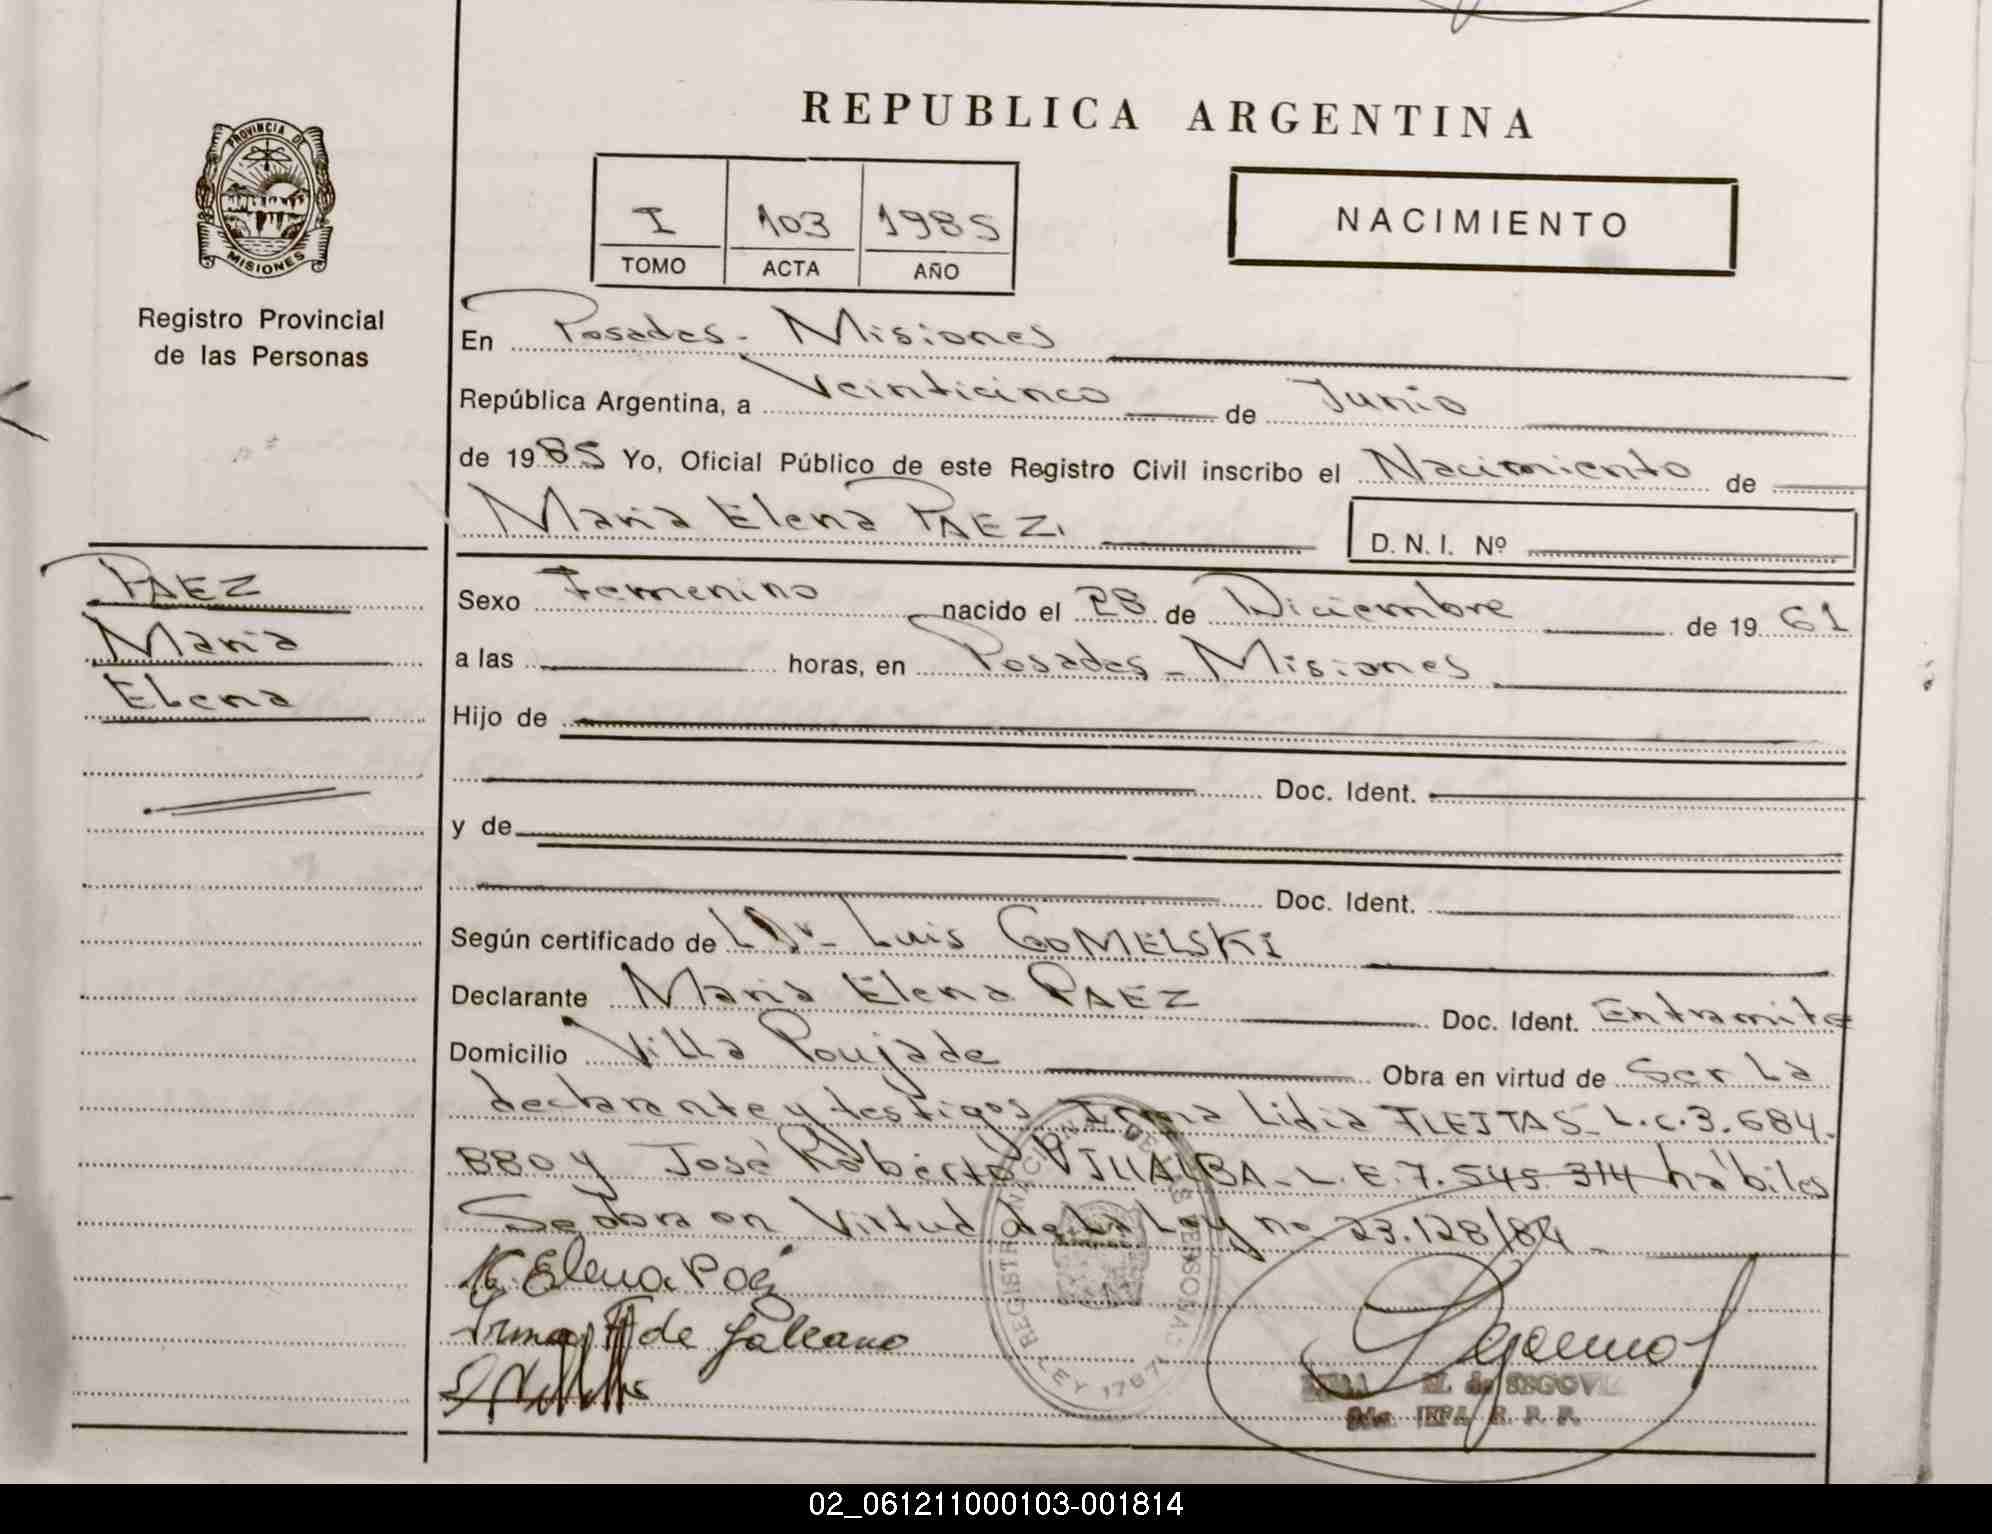 REPUBLICA ARGENTINA
PROVINCIA DE
MISIONES
Registro Provincial
de las Personas
I 103 1985
TOMO ACTA AÑO
NACIMIENTO
En Posadas - Misiones
República Argentina, a Veinticinco de Junio
de 1985 Yo, Oficial Público de este Registro Civil inscribo el Nacimiento de
Maria Elena PAEZ. D. N. I. Nº
PAEZ
Maria
Elena
Sexo Femenino nacido el 28 de Diciembre de 1961
a las horas, en Posadas - Misiones
Hijo de
Doc. Ident.
y de
Doc. Ident.
Según certificado de Dr. Luis GOMELSKI
Declarante Maria Elena PAEZ Doc. Ident. Entramite
Domicilio Villa Poujade Obra en virtud de Ser La
declarante y testigos Irma Lidia FLEITAS - L.C. 3.684.
880 y José Roberto VILLALBA - L.E. 7.545.314 hábiles
Se obra en Virtud de La Ley nº 23.128/84 -
M. Elena Paez
Irma F de Galeano
REGISTRO NACIONAL DE LAS PERSONAS
LEY 17671
M. de SEGOVIA
R. P. P.
02_061211000103-001814